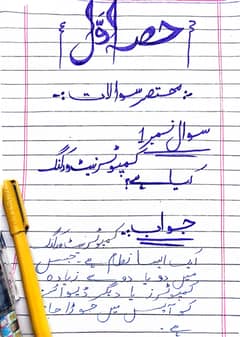 حصہ اوّل
مختصر سوالات:-
سوال نمبر 1
کمپیوٹر نیٹ ورکنگ
کیا ہے؟
جواب:- کمپیوٹر نیٹ ورکنگ
ایک ایسا نظام ہے۔ جس
میں دو یا دو سے زیادہ
کمپیوٹرز یا دیگر ڈیوائسز
کو آپس میں جوڑا جاتا
ہے۔